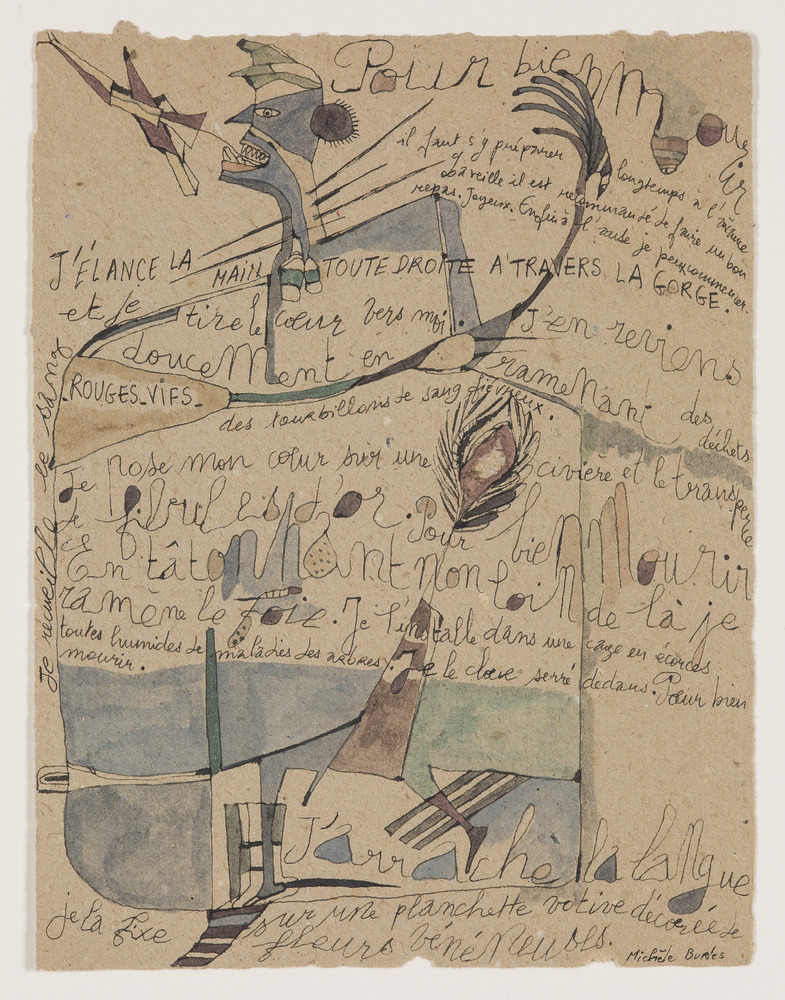 Pour bien mourir
il faut s'y préparer longtemps à l'avance
la veille il est recommandé de faire un bon
repas. Joyeux. Enfin à l'aube je peux commencer.
J'ÉLANCE LA MAIN TOUTE DROITE A TRAVERS LA GORGE.
et je tire le cœur vers moi. J'en reviens
doucement en ramenant des déchets
ROUGES-VIFS-
des tourbillons de sang fiévreux.
Je pose mon cœur sur une civière et le transperce
de fibules d'or. Pour bien mourir
En tâtonnant non loin de là je
ramène le foie. Je l'installe dans une cage en écorces
toutes humides de maladies des arbres. Je le cloue serré dedans. Pour bien
mourir.
Je recueille le sang
J'arrache la langue
je la fixe sur une planchette votive décorée de
fleurs vénéneuses.
Michèle Burles